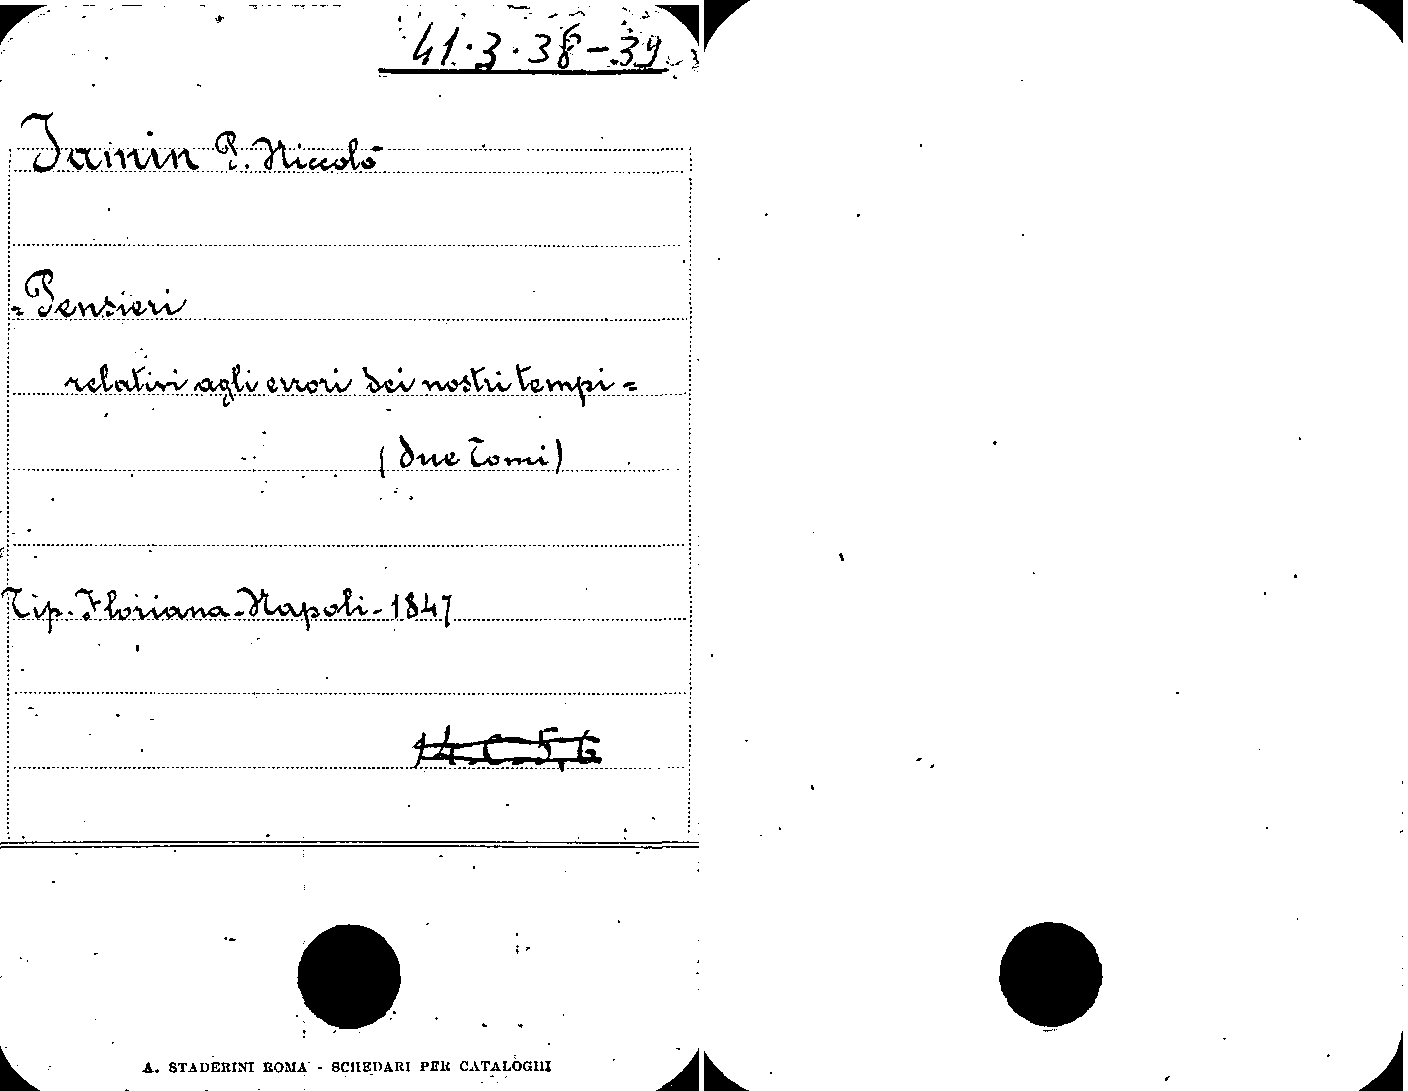 41.3.38-39
Jamin P. Niccolò
=Pensieri
relativi agli errori dei nostri tempi=
(due Tomi)
Tip. Floriana-Napoli-1847
14.C.5,6
A. STADERINI ROMA - SCHEDARI PER CATALOGHI